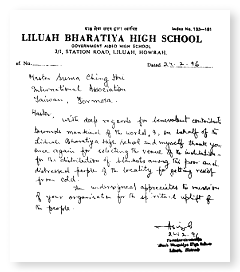 Index No. 123-181
LILUAH BHARATIYA HIGH SCHOOL
GOVERNMENT AIDED HIGH SCHOOL
2/1, STATION ROAD, LILUAH, HOWRAH.
of No. Dated 24.2.96
Master Suma Ching Hai
International Association
Taiwan, Formosa.
Master,
With deep regards for benevolent contributions
towards mankind of the world, I, on behalf of the
Liluah Bharatiya High school and myself thank you
once again for selecting the venue of the institution
for the distribution of blankets among the poor and
distressed people of the locality for getting relief
from cold.
The undersigned appreciates the mission
of your organisation for the spiritual uplift of
the people.
24.2.96
Liluah Bharatiya High School